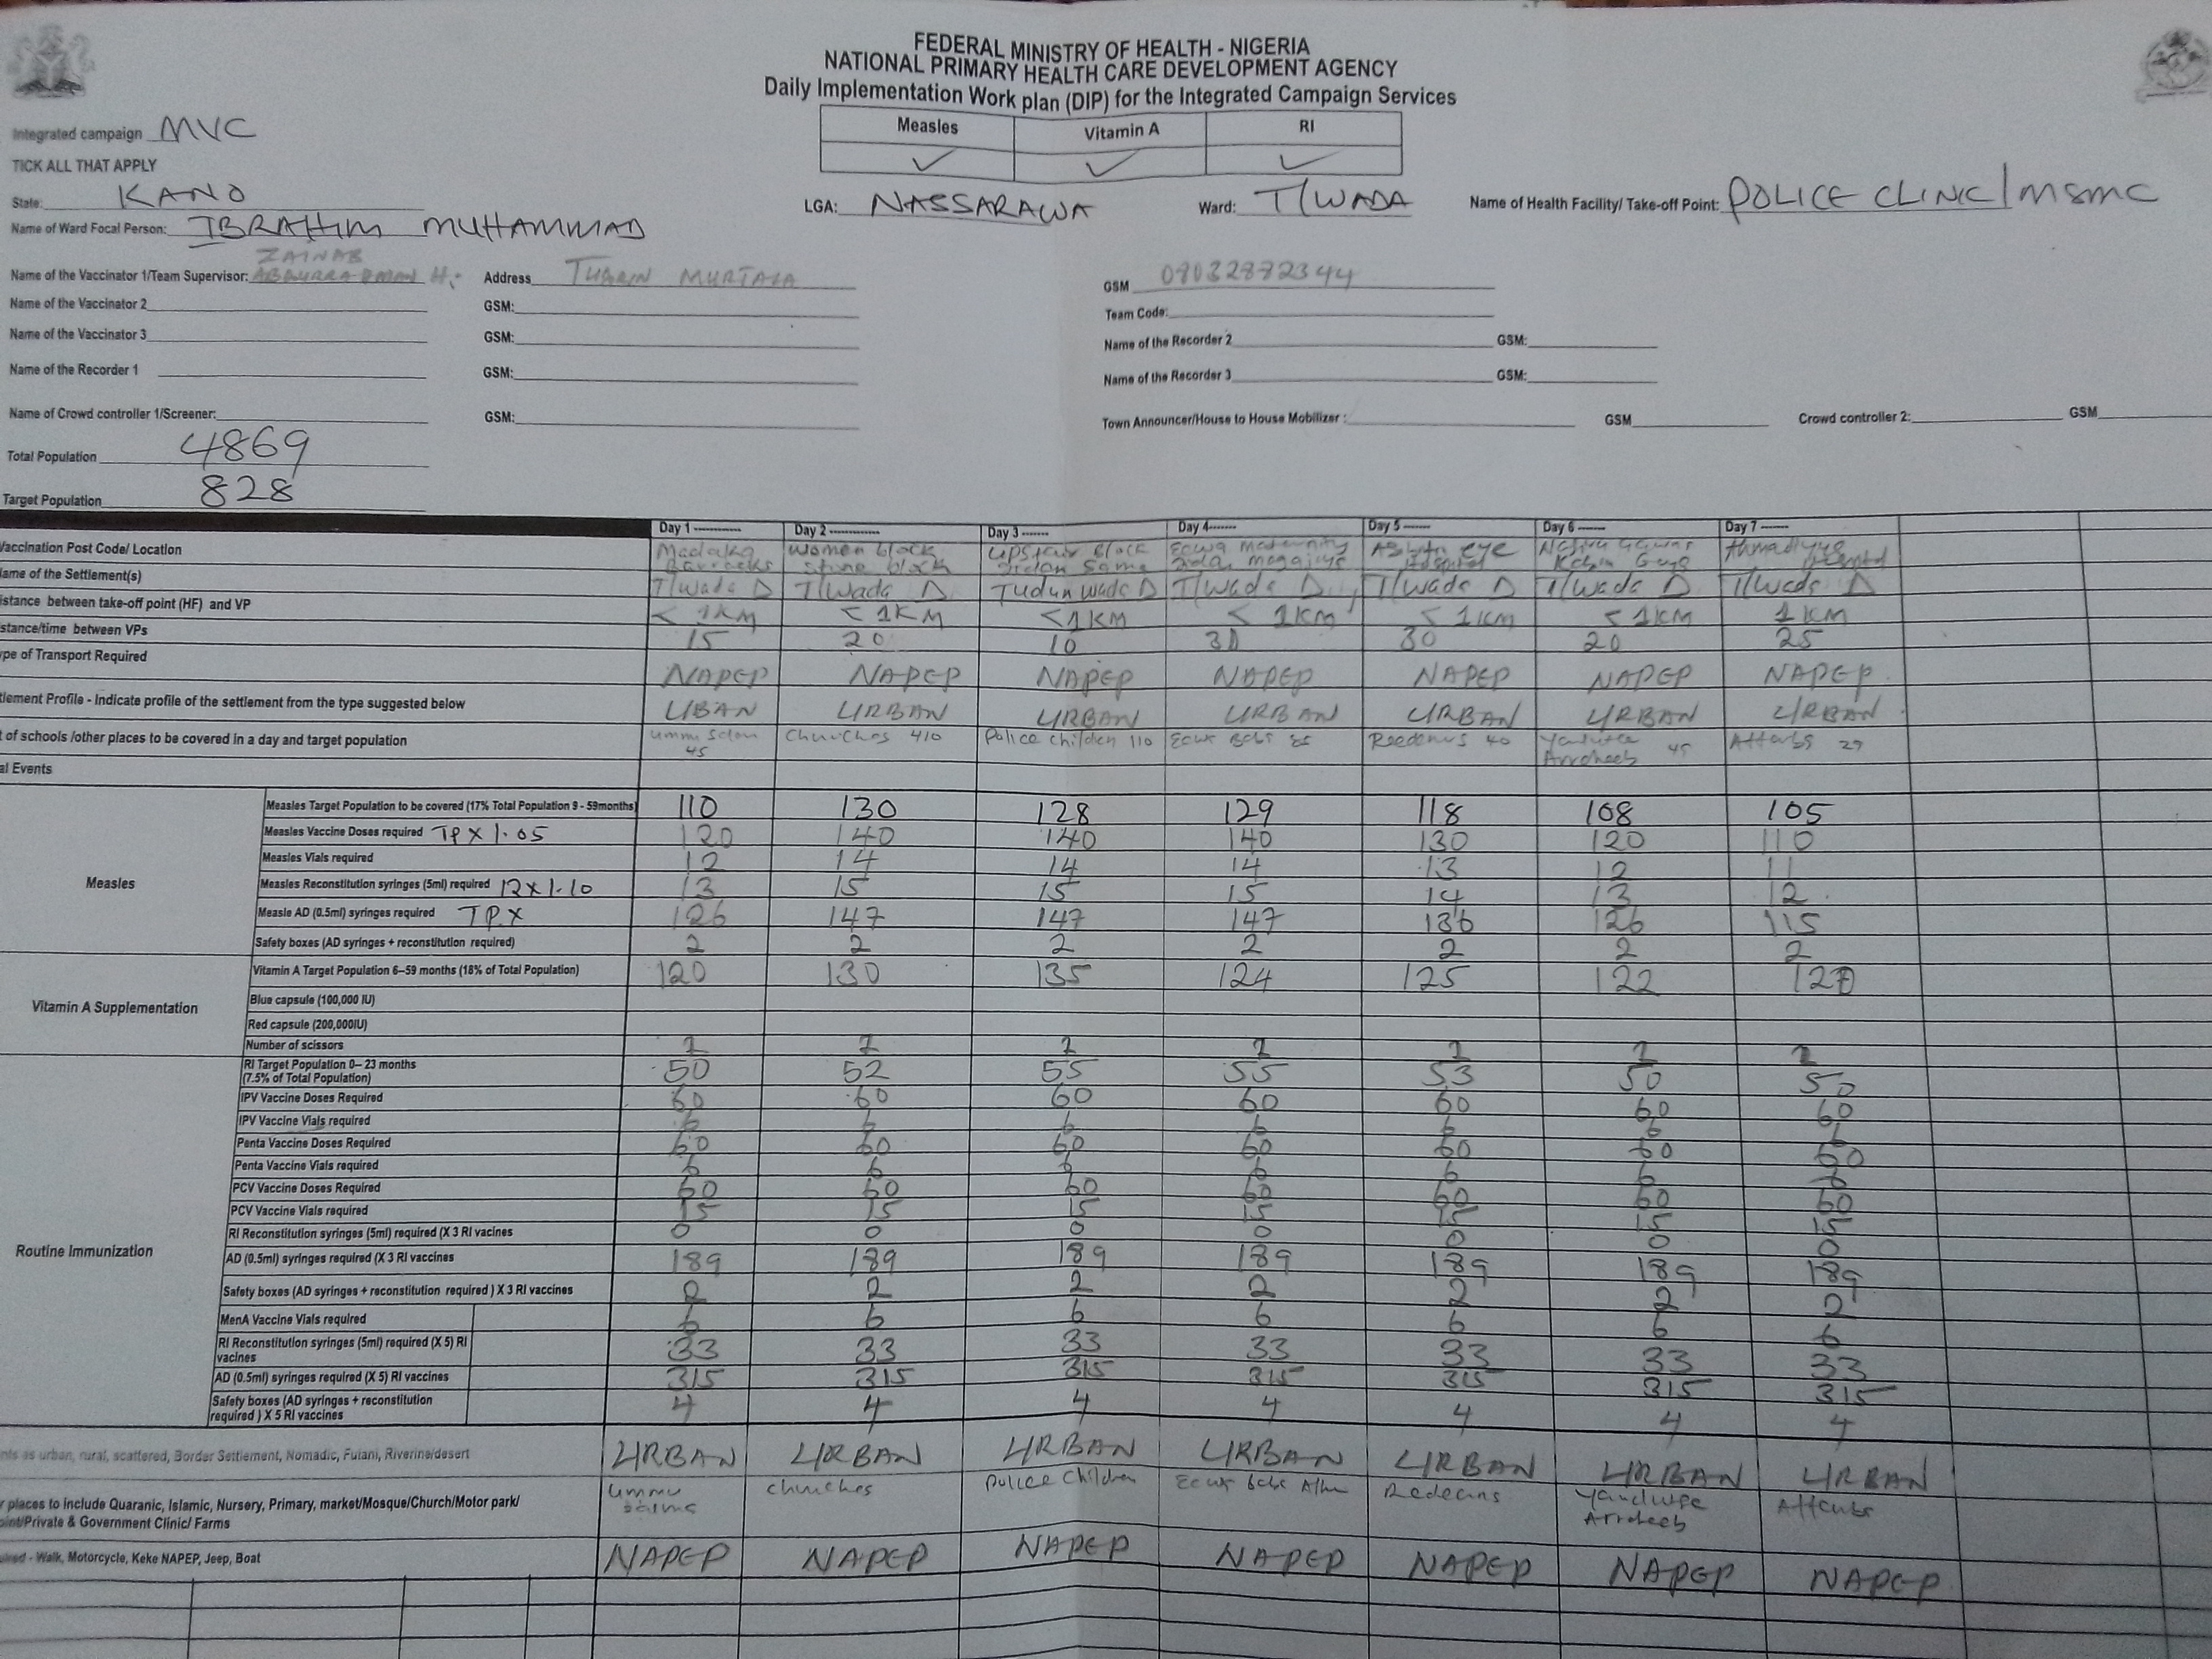 FEDERAL MINISTRY OF HEALTH - NIGERIA
NATIONAL PRIMARY HEALTH CARE DEVELOPMENT AGENCY
Daily Implementation Work plan (DIP) for the Integrated Campaign Services
Integrated campaign MVC
Measles Vitamin A RI
TICK ALL THAT APPLY ✓ ✓ ✓
State: KANO LGA: NASSARAWA Ward: T/WADA Name of Health Facility/ Take-off Point: POLICE CLINIC/MSMC
Name of Ward Focal Person: IBRAHIM MUHAMMAD
ZAINAB
Name of the Vaccinator 1/Team Supervisor: H. Address MURTALA GSM
Name of the Vaccinator 2 GSM: Team Code:
Name of the Vaccinator 3 GSM: Name of the Recorder 2 GSM:
Name of the Recorder 1 GSM: Name of the Recorder 3 GSM:
Name of Crowd controller 1/Screener: GSM: Town Announcer/House to House Mobilizer : GSM Crowd controller 2: GSM
Total Population 4869
Target Population 828
Day 1 Day 2 Day 3 Day 4 Day 5 Day 6 Day 7
Vaccination Post Code/ Location Women block Block Maternity eye
ame of the Settlement(s) T/Wada D T/Wada D Tudun Wada D T/Wada D T/Wada D T/Wada D T/Wada D
istance between take-off point (HF) and VP < 1KM < 1KM <1KM < 1KM < 1KM < 1KM 1KM
stance/time between VPs 15 20 10 30 30 20 25
ype of Transport Required NAPEP NAPEP NAPEP NAPEP NAPEP NAPEP NAPEP
tlement Profile - Indicate profile of the settlement from the type suggested below UBAN URBAN URBAN URBAN URBAN URBAN URBAN
t of schools /other places to be covered in a day and target population 45 Churches 410 Police Children 110 40 45 29
al Events
Measles
Measles Target Population to be covered (17% Total Population 9 - 59months) 110 130 128 129 118 108 105
Measles Vaccine Doses required TP X 1.05 120 140 140 140 130 120 110
Measles Vials required 12 14 14 14 13 12 11
Measles Reconstitution syringes (5ml) required 12 x 1.10 13 15 15 15 14 13 12
Measle AD (0.5ml) syringes required TP.X 126 147 147 147 136 126 115
Safety boxes (AD syringes + reconstitution required) 2 2 2 2 2 2 2
Vitamin A Supplementation
Vitamin A Target Population 6–59 months (18% of Total Population) 120 130 135 124 125 122
Blue capsule (100,000 IU)
Red capsule (200,000IU)
Number of scissors
Routine Immunization
RI Target Population 0– 23 months
(7.5% of Total Population) 50 52 55 55 53 50 50
IPV Vaccine Doses Required 60 60 60 60 60 60 60
IPV Vaccine Vials required 6 6 6 6 6 6 6
Penta Vaccine Doses Required 60 60 60 60 60 60 60
Penta Vaccine Vials required 6 6 6 6 6 6 6
PCV Vaccine Doses Required 60 60 60 60 60 60 60
PCV Vaccine Vials required 15 15 15 15 15 15 15
RI Reconstitution syringes (5ml) required (X 3 RI vacines 0 0 0 0 0 0 0
AD (0.5ml) syringes required (X 3 RI vaccines 189 189 189 189 189 189 189
Safety boxes (AD syringes + reconstitution required ) X 3 RI vaccines 2 2 2 2 2 2 2
MenA Vaccine Vials required 6 6 6 6 6 6 6
RI Reconstitution syringes (5ml) required (X 5) RI
vacines 33 33 33 33 33 33 33
AD (0.5ml) syringes required (X 5) RI vaccines 315 315 315 315 315 315 315
Safety boxes (AD syringes + reconstitution
required ) X 5 RI vaccines 4 4 4 4 4 4 4
nts as urban, rural, scattered, Border Settlement, Nomadic, Fulani, Riverine/desert URBAN URBAN URBAN URBAN URBAN URBAN URBAN
r places to include Quaranic, Islamic, Nursery, Primary, market/Mosque/Church/Motor park/ Ummu Churches Police Children
oint/Private & Government Clinic/ Farms
uired - Walk, Motorcycle, Keke NAPEP, Jeep, Boat NAPEP NAPEP NAPEP NAPEP NAPEP NAPEP NAPEP